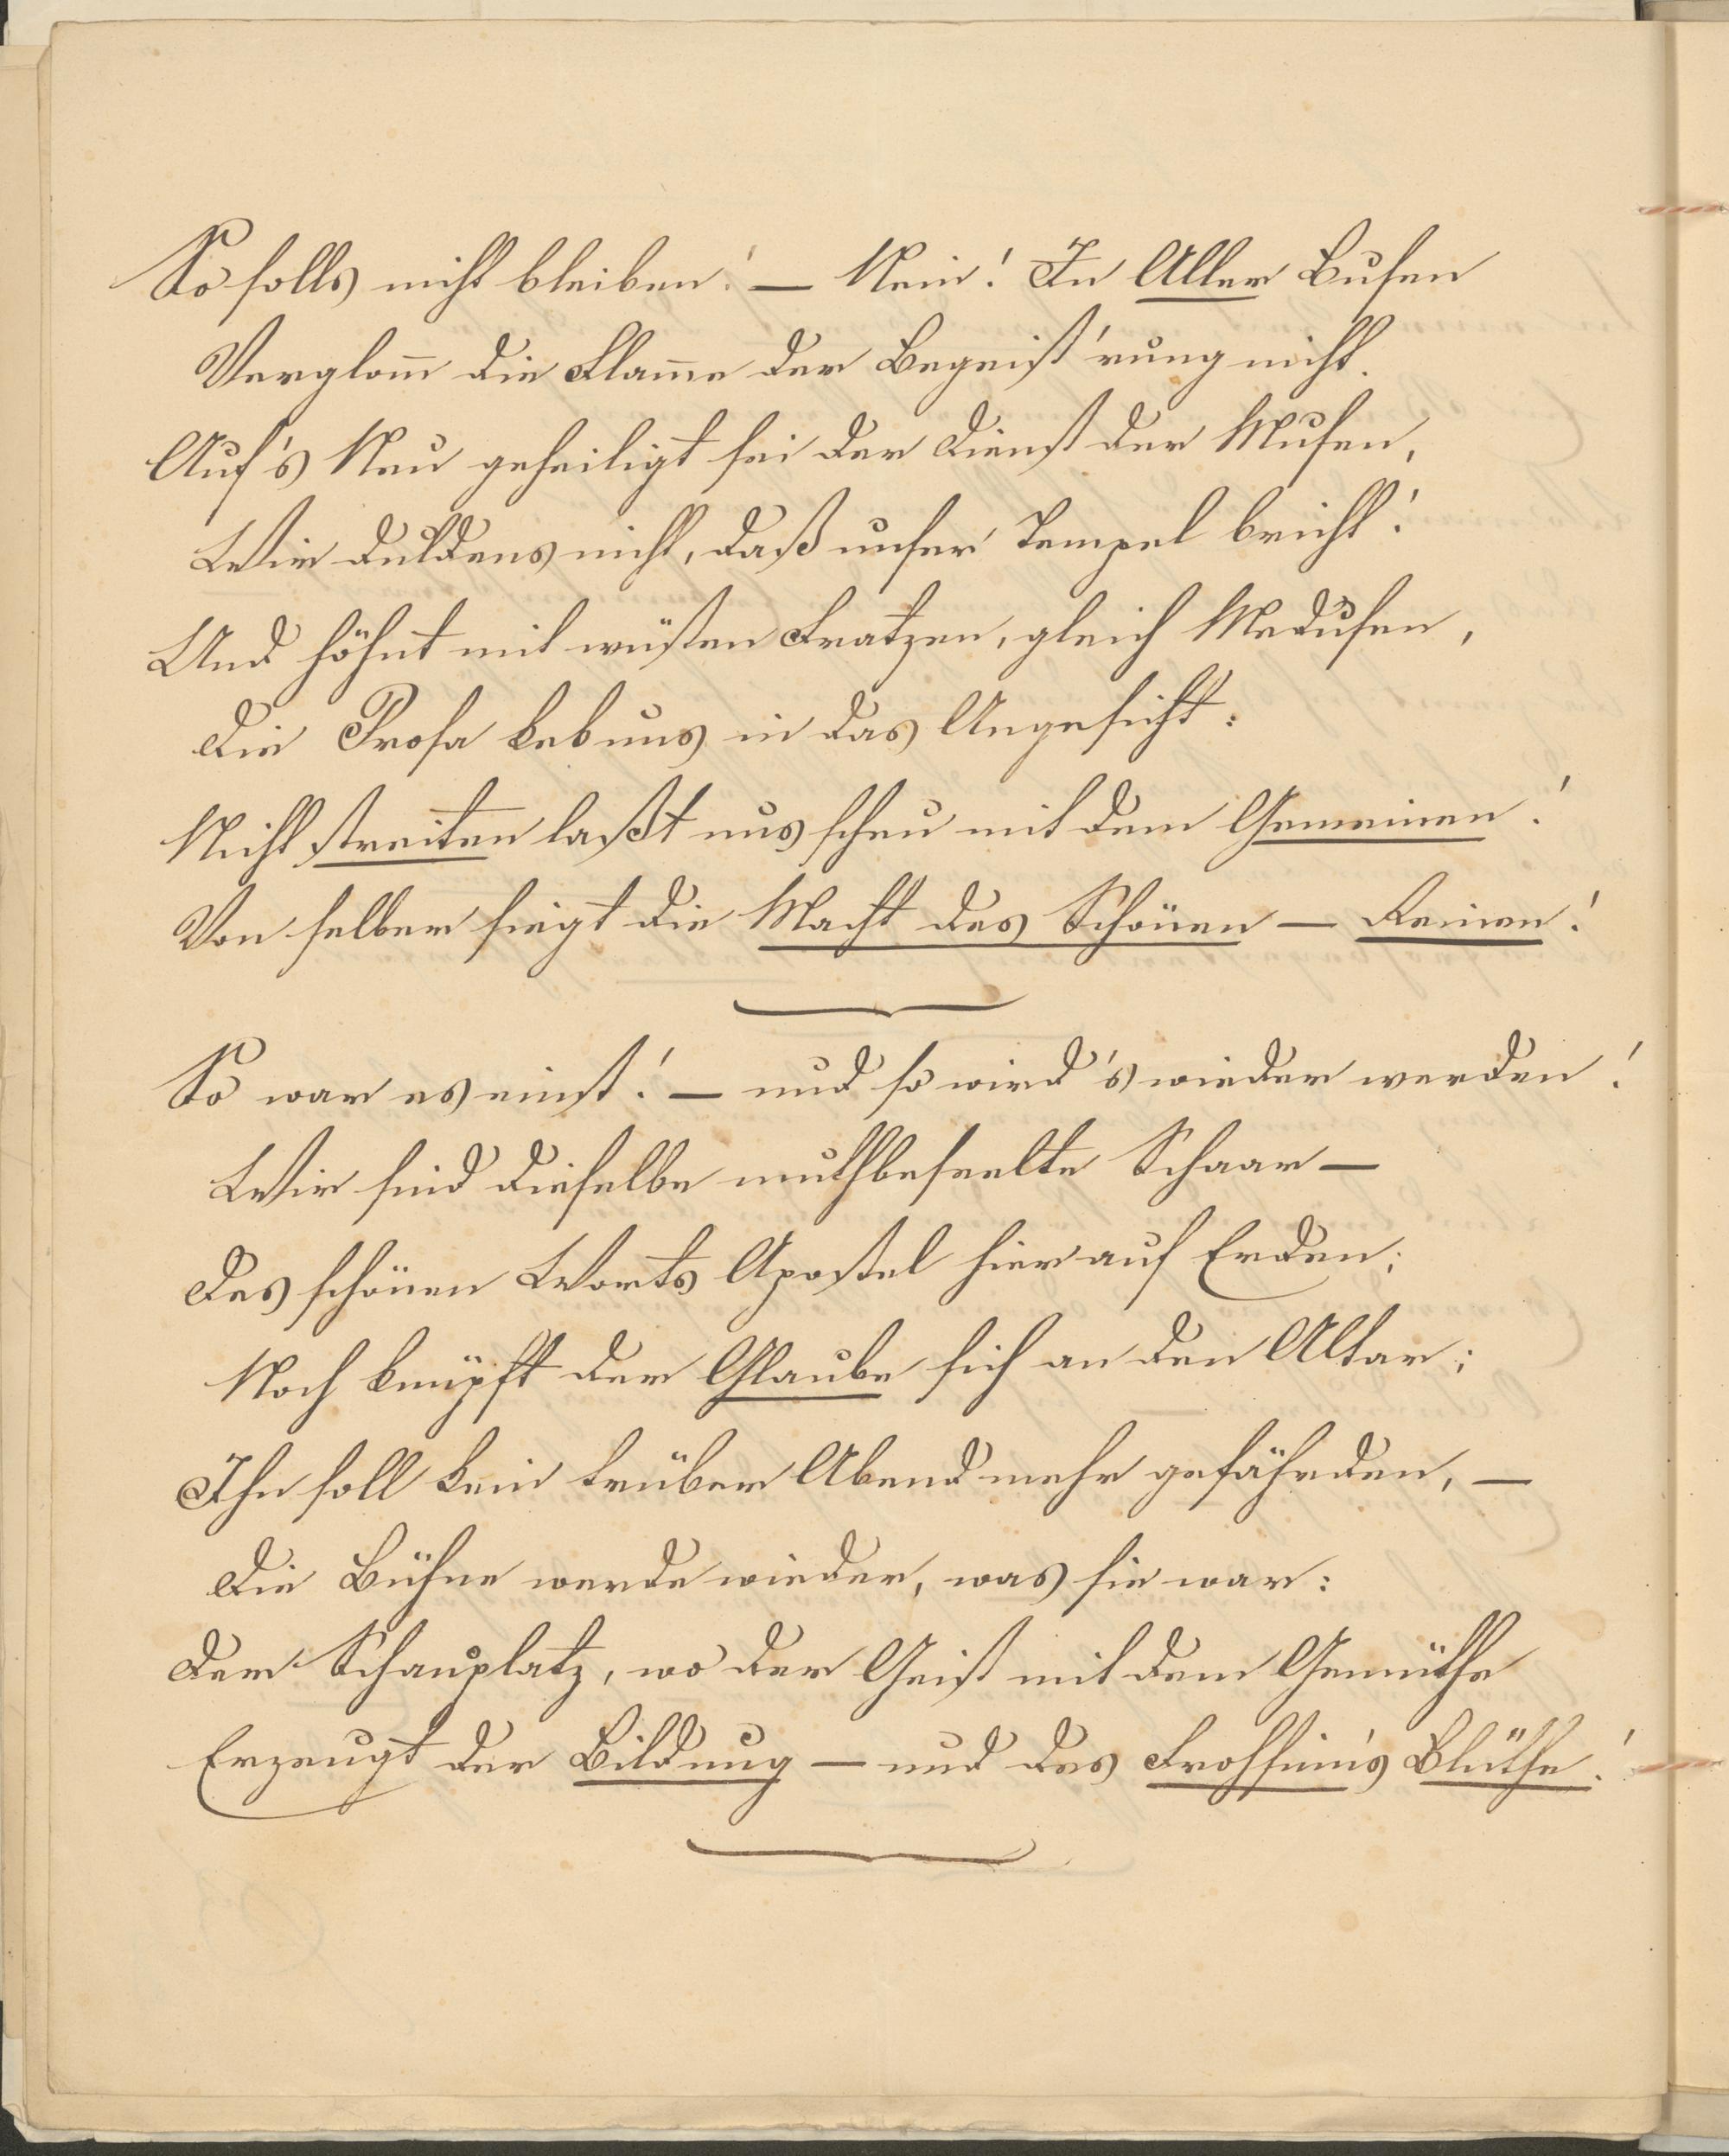 So solls nicht bleiben! — Nein! In Aller Busen
Verglom̄ die Flam̄e der Begeist'rung nicht.
Auf's Neu geheiligt sei der Dienst der Musen,
Wir duldens nicht, daß unser Tempel bricht!
Und höhnt mit wüsten Fratzen, gleich Medusen,
Die Prosa keb uns in das Angesicht:
Nicht streiten laßt uns scheu mit dem Gemeinen!
Von selber siegt die Macht des Schönen — Reinen!
So war es einst! — und so wird's wieder werden!
Wir sind dieselbe muthbeseelte Schaar —
Des schönen Worts Apostel hier auf Erden;
Noch knüpft der Glaube sich an den Altar;
Ihn soll kein trüber Abend mehr gefährden, —
Die Bühne werde wieder, was sie war:
Der Schauplatz, wo der Geist mit dem Gemüthe
Erzeugt der Bildung — und des Frohsinns Blüthe!